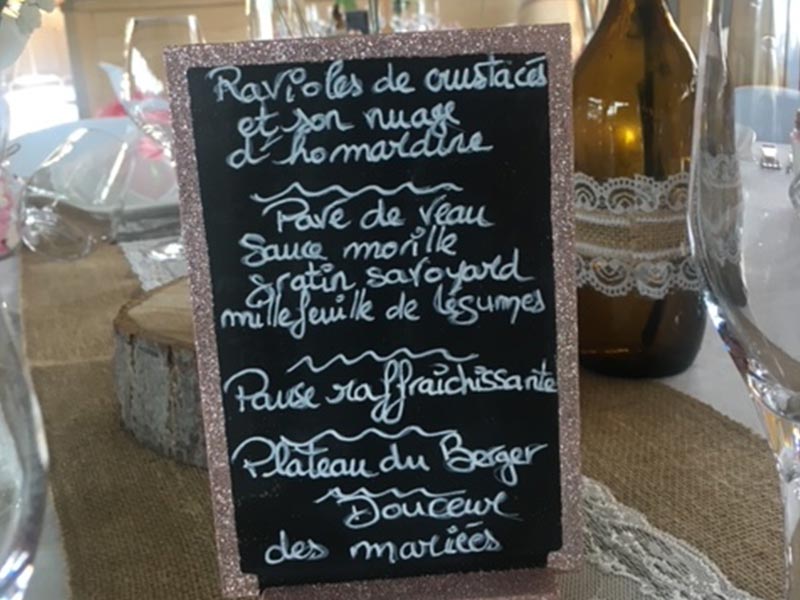 Ravioles de crustacés
et son nuage
d'homardine
Pavé de veau
Sauce morille
gratin savoyard
millefeuille de légumes
Pause raffraichissante
Plateau du Berger
Douceur
des mariées